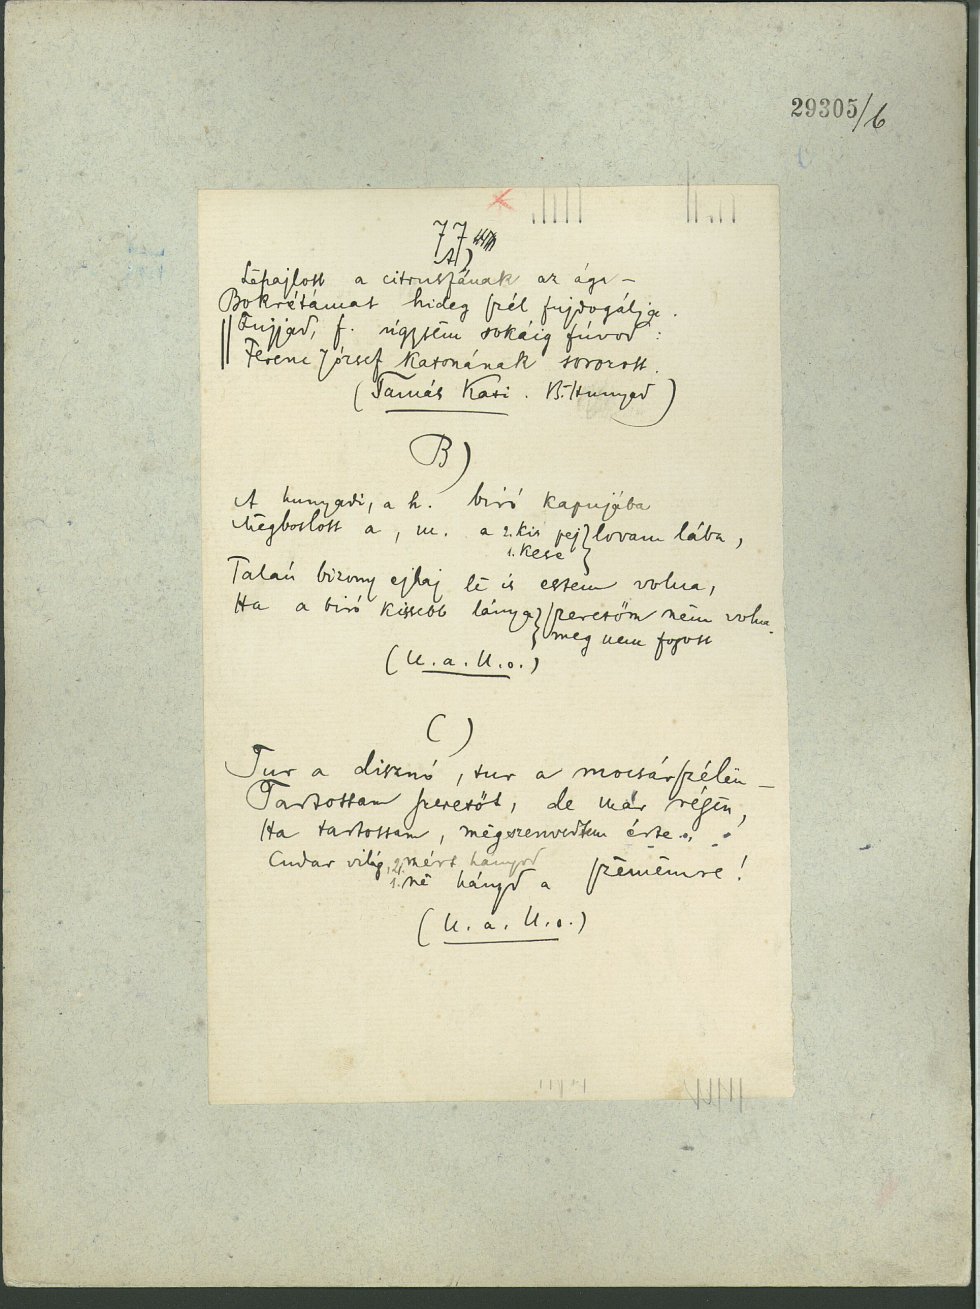 29305/6
77
A)
Léhajlott a citrusfának az ága –
Bokrétámat hideg szél fujdogálja.
Fujjad, f. úgysëm sokáig fúvod:
Ferenc József katonának sorozott.
(Tamás Kati. B.-Hunyad)
B)
A hunyadi, a h. biró kapujába
Mëgbotlott a, m. a 2. kis pej } lovam lába,
1. kese
Talán bizony ejhaj lé is estem volna,
Ha a biró kissebb lánya } szeretőm nëm volna.
meg nem fogott
(U. a. U. o.)
C)
Tur a disznó, tur a mocsár szélën –
Tartottam szeretőt, de már régën,
Ha tartottam, mëgszenvedtem érte..
Cudar világ, 2. mért hányod
1. në hányd a szëmëmre!
(U. a. U. o.)